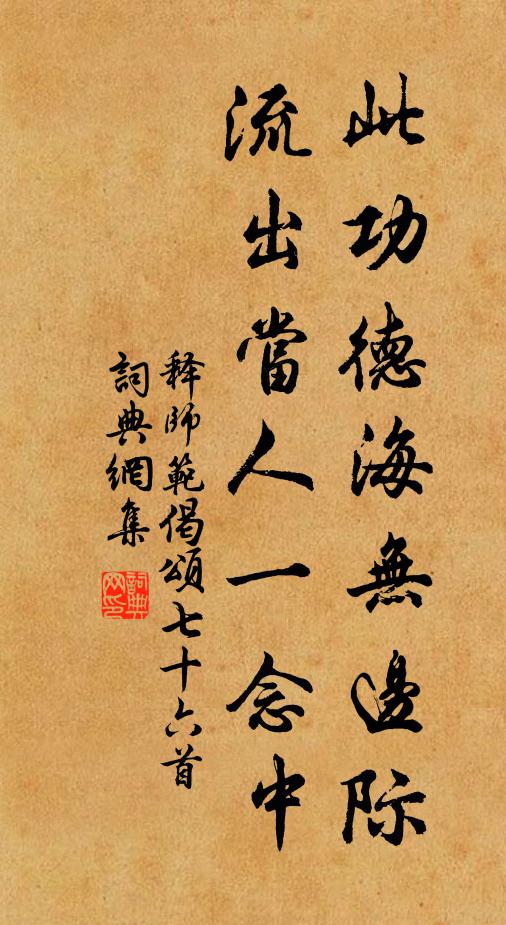 此功德海無邊際
流出當人一念中
释師範偈頌七十六首
詞典網集
詞典网印